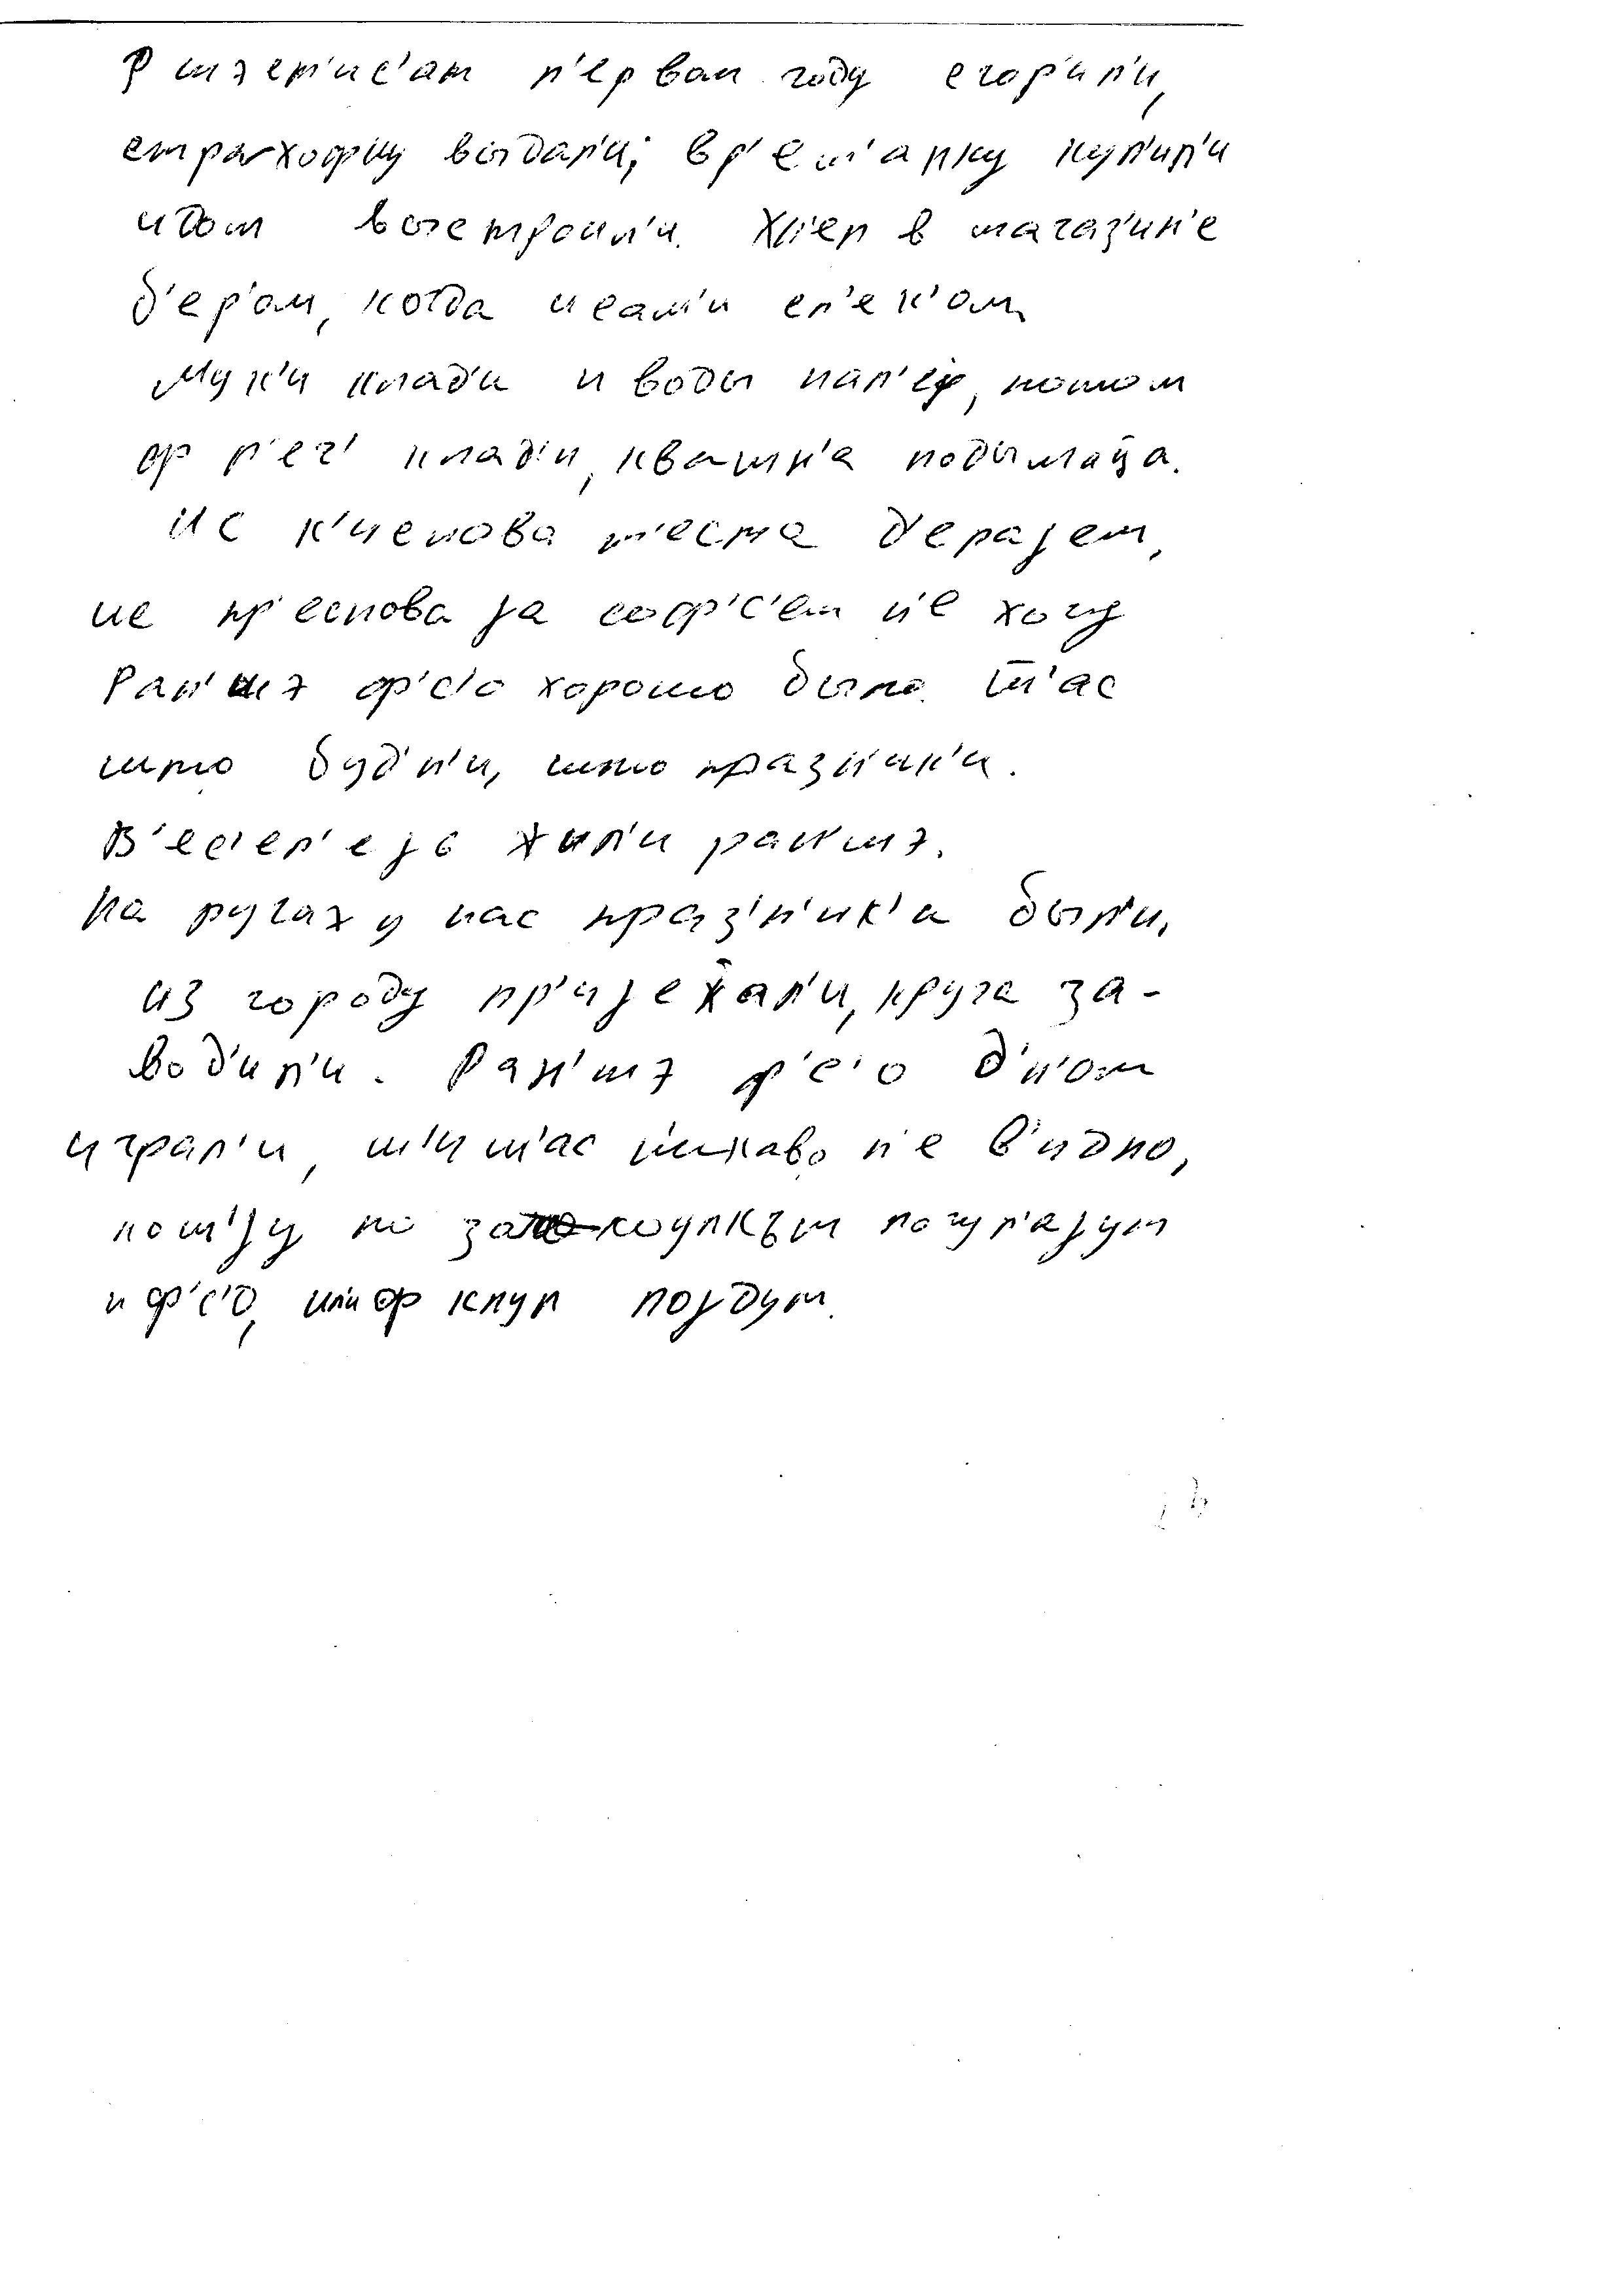 Ф шэз'ис'ат п'ервам году сгор'ел'и,
страхофку выдал'и; вр'ем'анку куп'ил'и
и дом выстроил'и. Хл'еп в магаз'ин'е
б'ер'ом, когда и сам'и сп'ек'ом.
Мук'и клад'и и воды нал'еј, потом
ф п'еч' клад'и, квашн'а подымаца.
Ис к'иснова т'еста д'елајем,
ис пр'еснова ја софс'ем н'е хочу
Ран'шэ ф'с'о хорошо было. Щ'ас
што буд'н'и, што празн'ик'и.
В'ес'ел'еја жыл'и ран'шэ.
На ругах у нас праз'н'ик'и был'и,
из городу пр'ијежал'и, круга за-
вод'ил'и. Ран'шэ ф'с'о д'н'ом
играл'и, ш'иш'ас н'икаво н'е в'идно,
ноч'ју по закоулкъм погул'ајут
и ф'с'о, ил'и ф клуп појдут.